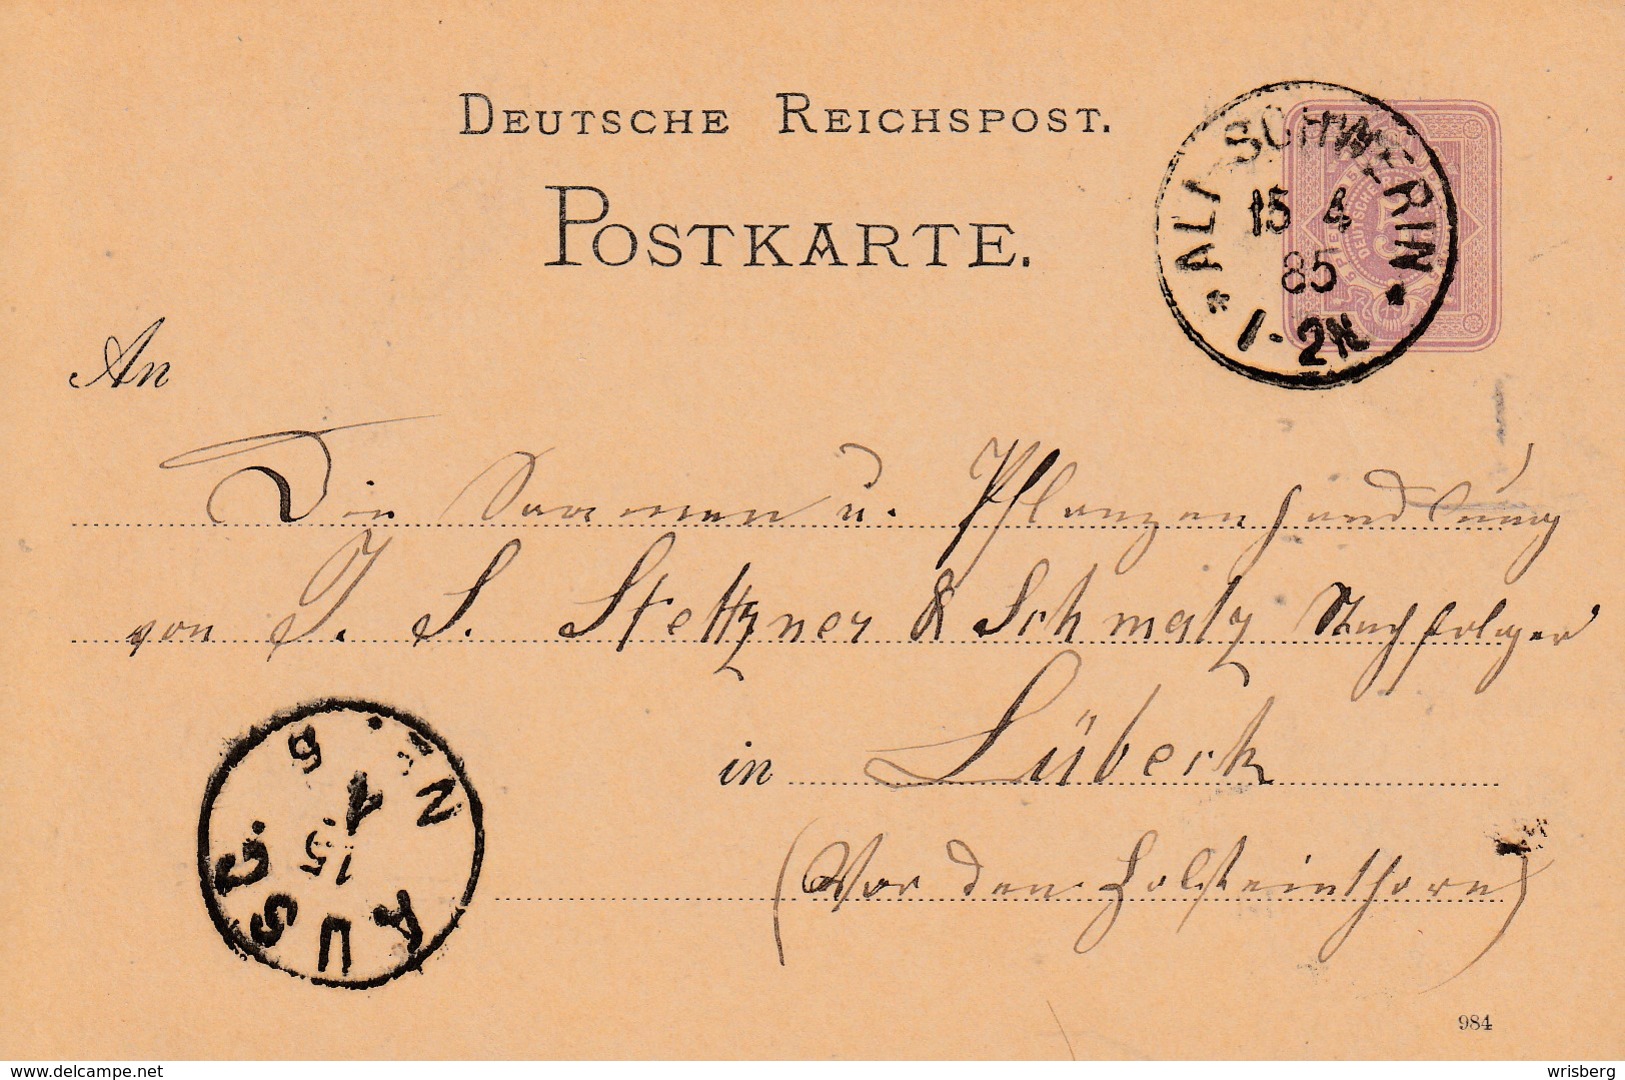 DEUTSCHE REICHSPOST.
POSTKARTE.
* ALT SCHWERIN *
15 4
85
1-2N
An
Die Saamen u. Pflanzenhandlung
von J. S. Stettzner & Schmalz Nachfolger
in Lübeck
(Vor dem Holsteinthore)
AUSG.
15
4
5 - N
984
www.delcampe.net
wrisberg